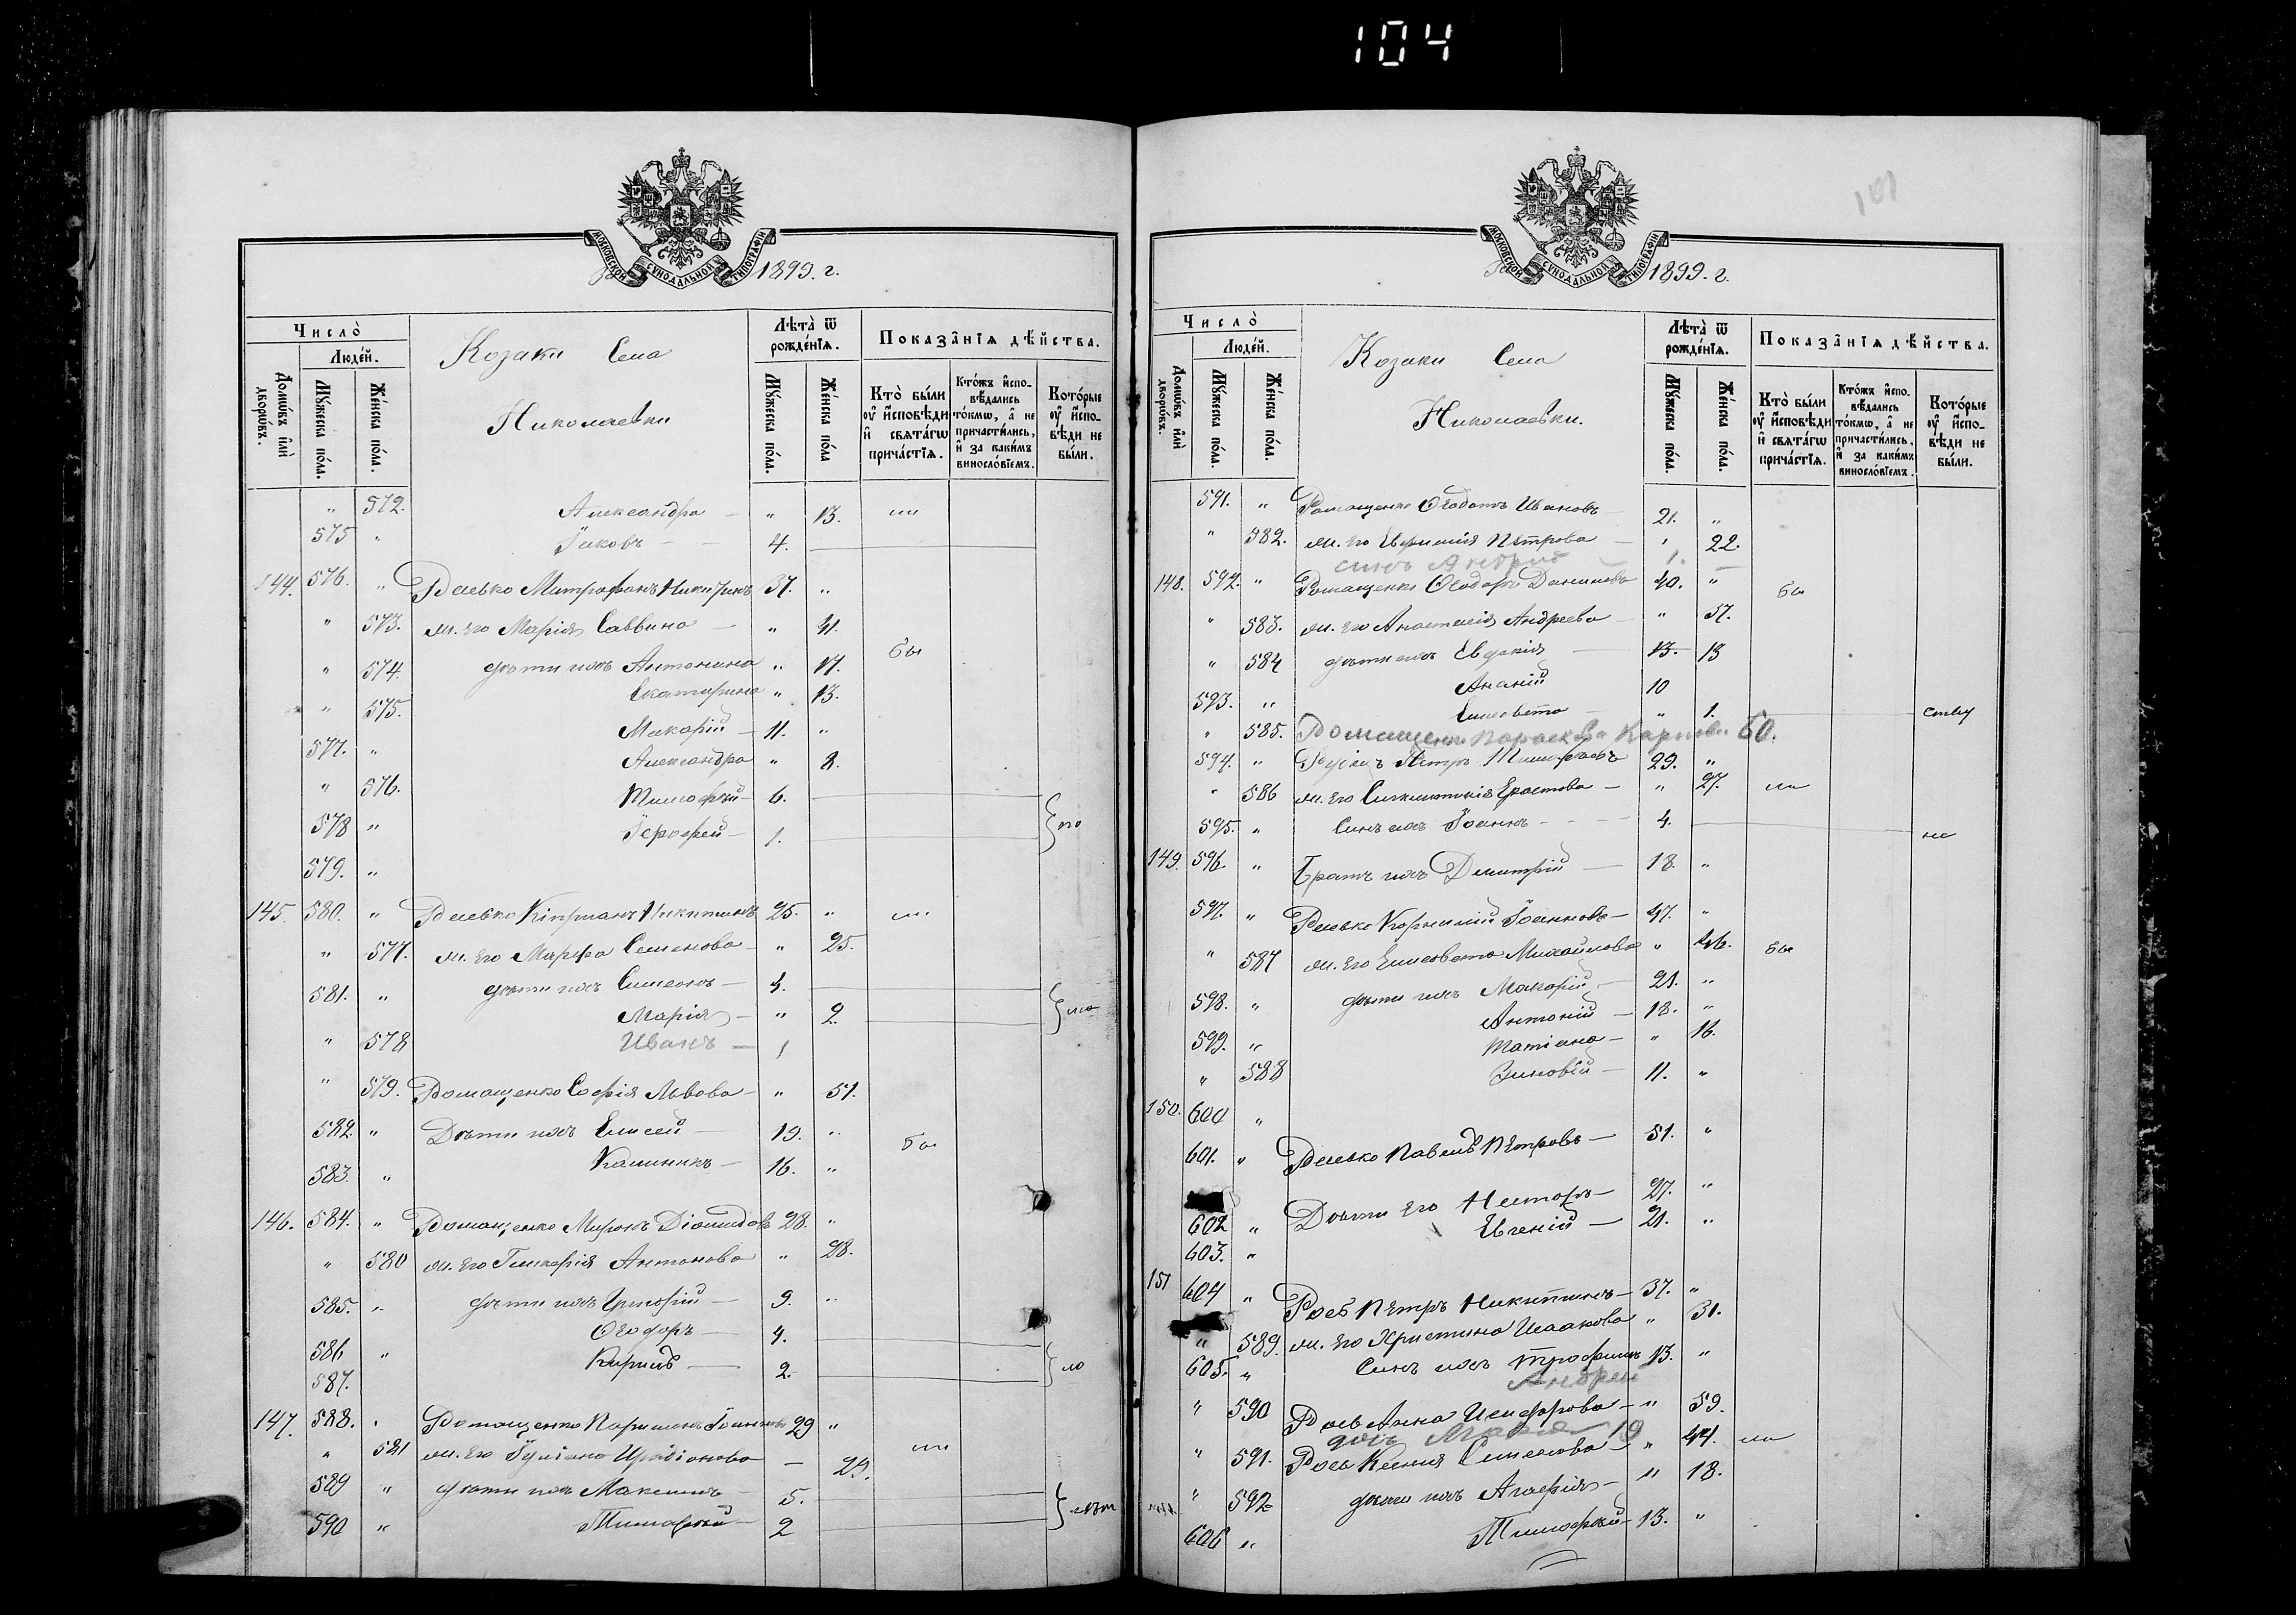 104
101
МОСКОВСКОЙ СѴНОДАЛЬНОЙ ТИПОГРАФІИ
1899. г.
Число̀
Людей.
Домѡвъ или дворѡвъ.
Мꙋжеска пола.
Женска пола.
Козаки Села
Николаевки
Лѣта ѿ рожденїѧ.
Мꙋжеска пола.
Женска пола
Показанїѧ дѣйства.
Кто были ᲂу҆ исповѣди и свѧтагѡ причастїѧ.
Ктожъ исповѣдались токмѡ, а не причастились, и за какимъ винословїемъ.
Которые ᲂу҆ исповѣди не были.
" 572. Александра — " 13.
575 " Іаковъ — 4.
144. 576. " Митрофанъ Никитинъ 37. "
" 573. ж. его Марія Саввина — " 41.
" 574. дѣти ихъ Антонина " 17. бы
" 575. Екатерина " 13.
577. " Макарій — 11. "
" 576. Александра " 8.
578 " Тимофей — 6.
579. " Іерофей — 1.
145. 580. " Кипріанъ Никитинъ 25. "
" 577. ж. его Марфа Семенова — " 25.
581. " дѣти ихъ Симеонъ — 4.
" 578 Марія — " 2
Иванъ — 1
" 579. Ромащенко Софія Львова — " 51.
582. " Дѣти ихъ Елисей — 19. "
583. " Калиникъ — 16. "
146. 584. " Ромащенко Миронъ Діомидовъ 28. "
" 580 ж. его Гликерія Антонова " 28.
585. " дѣти ихъ Григорій — 9. "
586 " Ѳеодоръ — 4.
587. Кирилъ — 2.
147. 588. " Ромащенко 29 "
" 581 ж. его Іуліана — 29.
589 " дѣти ихъ Максимъ 5.
590 " Тимофей — 2
МОСКОВСКОЙ СѴНОДАЛЬНОЙ ТИПОГРАФІИ
1899. г.
Число̀
Людей.
Домѡвъ или дворѡвъ.
Мꙋжеска пола.
Женска пола.
Козаки Села
Николаевки.
Лѣта ѿ рожденїѧ.
Мꙋжеска пола.
Женска пола.
Показанїѧ дѣйства.
Кто были ᲂу҆ исповѣди и свѧтагѡ причастїѧ.
Ктожъ исповѣдались токмѡ, а не причастились, и за какимъ винословїемъ.
Которые ᲂу҆ исповѣди не были.
591. " Ромащенко Ѳеодотъ Ивановъ 21. "
" 582. ж. его Евфимія Петрова " 22.
синъ Андрей 1.
148. 592. " Ромащенко Ѳеодоръ Даниловъ 40. " бы
" 583. ж. его Анастасія Андреева " 37.
" 584 дѣти ихъ Евдокія 13. 13
593. " Ананій 10
" 585. Елисавета " 1.
Ромащенко Параскева Карпова 60.
594. " Петръ Тимофеевъ 29. "
" 586 ж. его Синклитикія Ерастова — " 27.
595. " Синъ ихъ Іоаннъ 4.
149. 596. " Братъ ихъ Димитрій — 18. "
597. " Корнилій Іоанновъ — 47. "
" 587 ж. его Елисавета Михайлова " 46. бы
598. " дѣти ихъ Макарій 21. "
599. " Антоній — 18. "
" 588 Татіана — " 16.
150. 600 " Зиновій — 11. "
601. " Павелъ Петровъ — 51. "
602 " Дѣти его Несторъ — 27. "
603. " Евгеній — 21. "
151 604 " Петръ Никитинъ — 37. "
" 589. ж. его Христина Исаакова " 31.
605. " Синъ ихъ Трофимъ 13. "
Андрей
" 590 Анна — " 59.
дочь 19
" 591. Ксенія Симеонова — " 44.
" 592 дѣти ихъ Агафія — " 18.
606 " Тимофей — 13. "